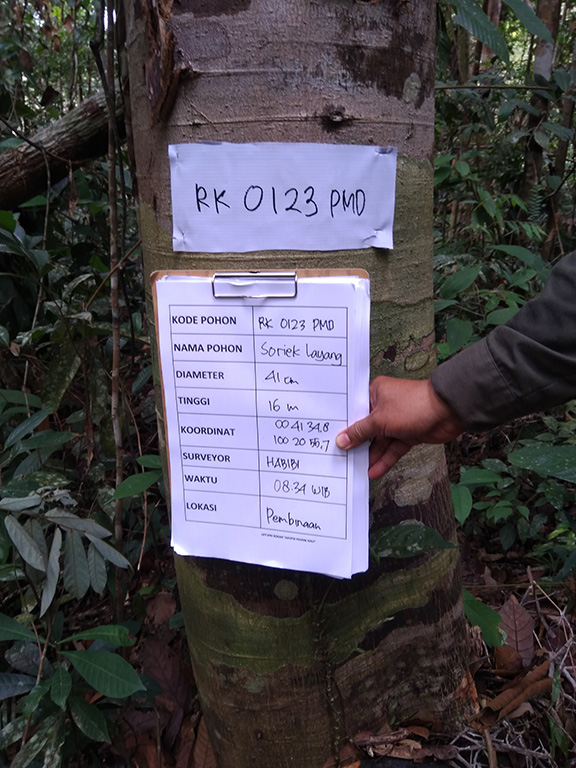 RK 0123 PMD
KODE POHON RK 0123 PMD
NAMA POHON Soriek Layang
DIAMETER 41 cm
TINGGI 16 m
KOORDINAT 00 41 34,8
100 20 50,7
SURVEYOR HABIBI
WAKTU 08:34 WIB
LOKASI Pembinaan